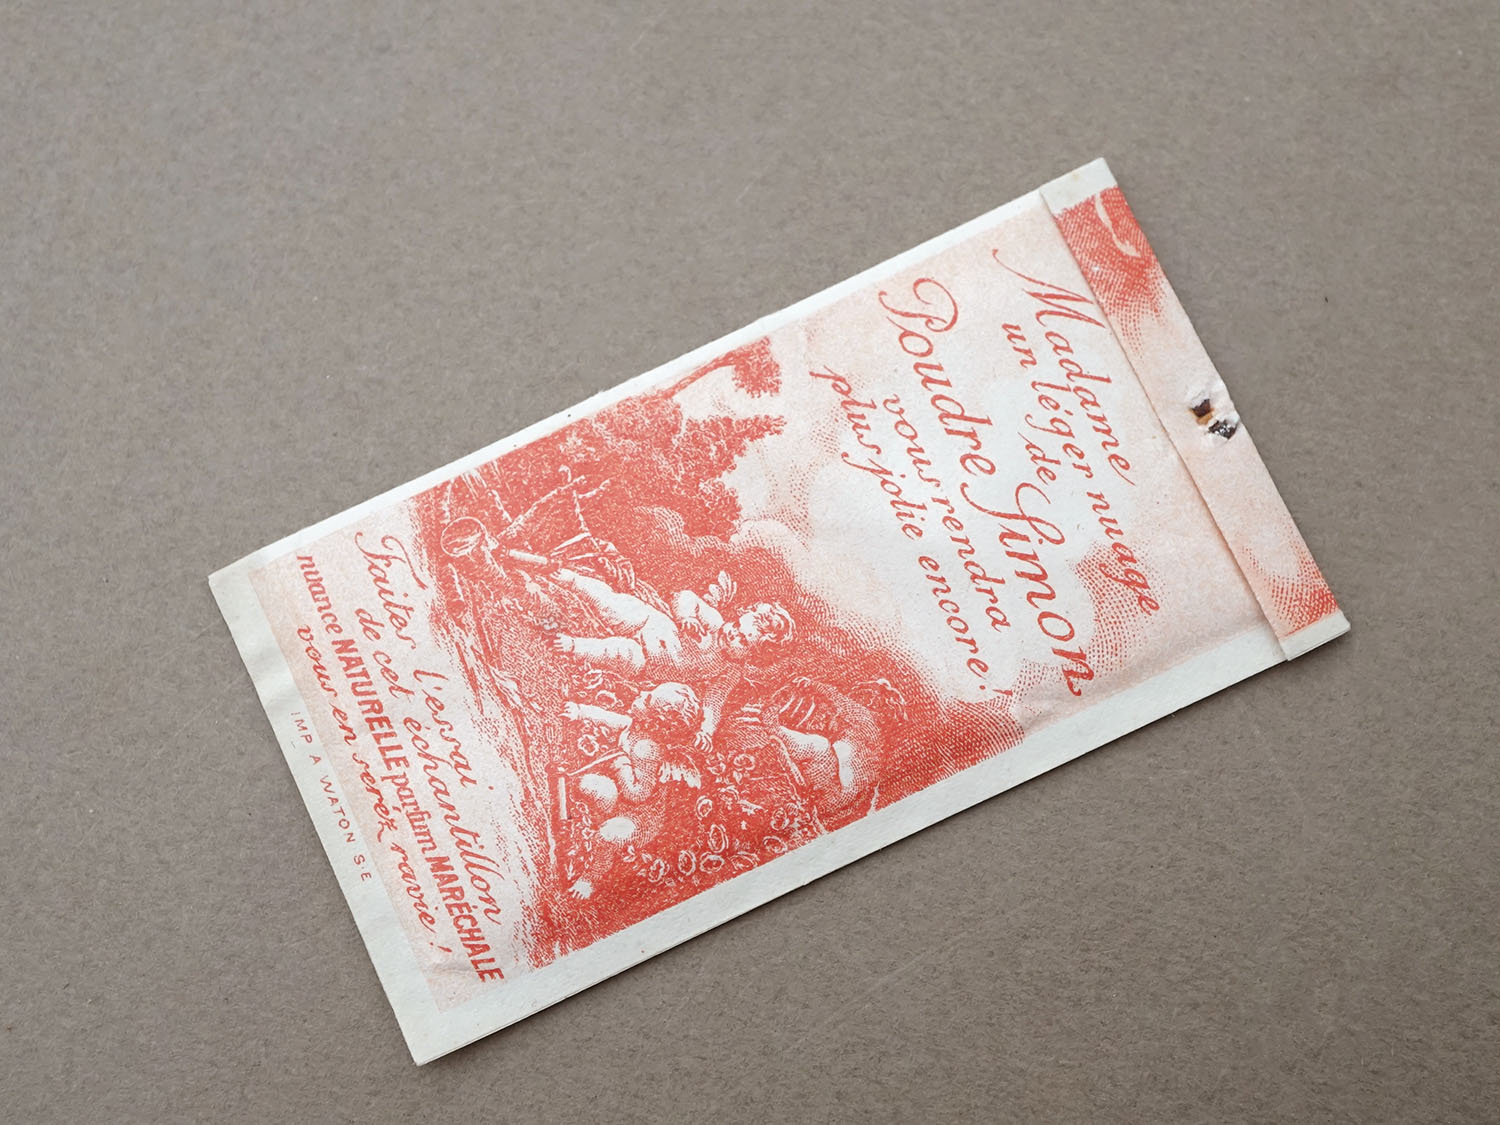 Madame
un léger nuage
de
Poudre Simon
vous rendra
plus jolie encore!
Faites l'essai
de cet échantillon
nuance NATURELLE parfum MARÉCHALE
vous en serez ravie!
IMP A WATON S E